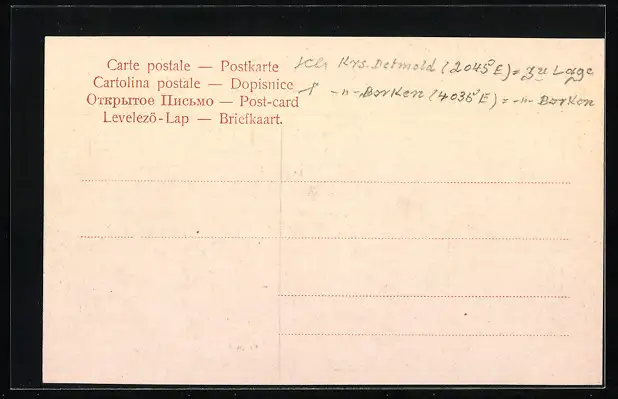 Carte postale — Postkarte
Cartolina postale — Dopisnice
Открытое Письмо — Post-card
Levelező-Lap — Briefkaart.
Krs. Detmold (2045 E) = zu Lage
-"- Borken (4036 E) = -"- Borken